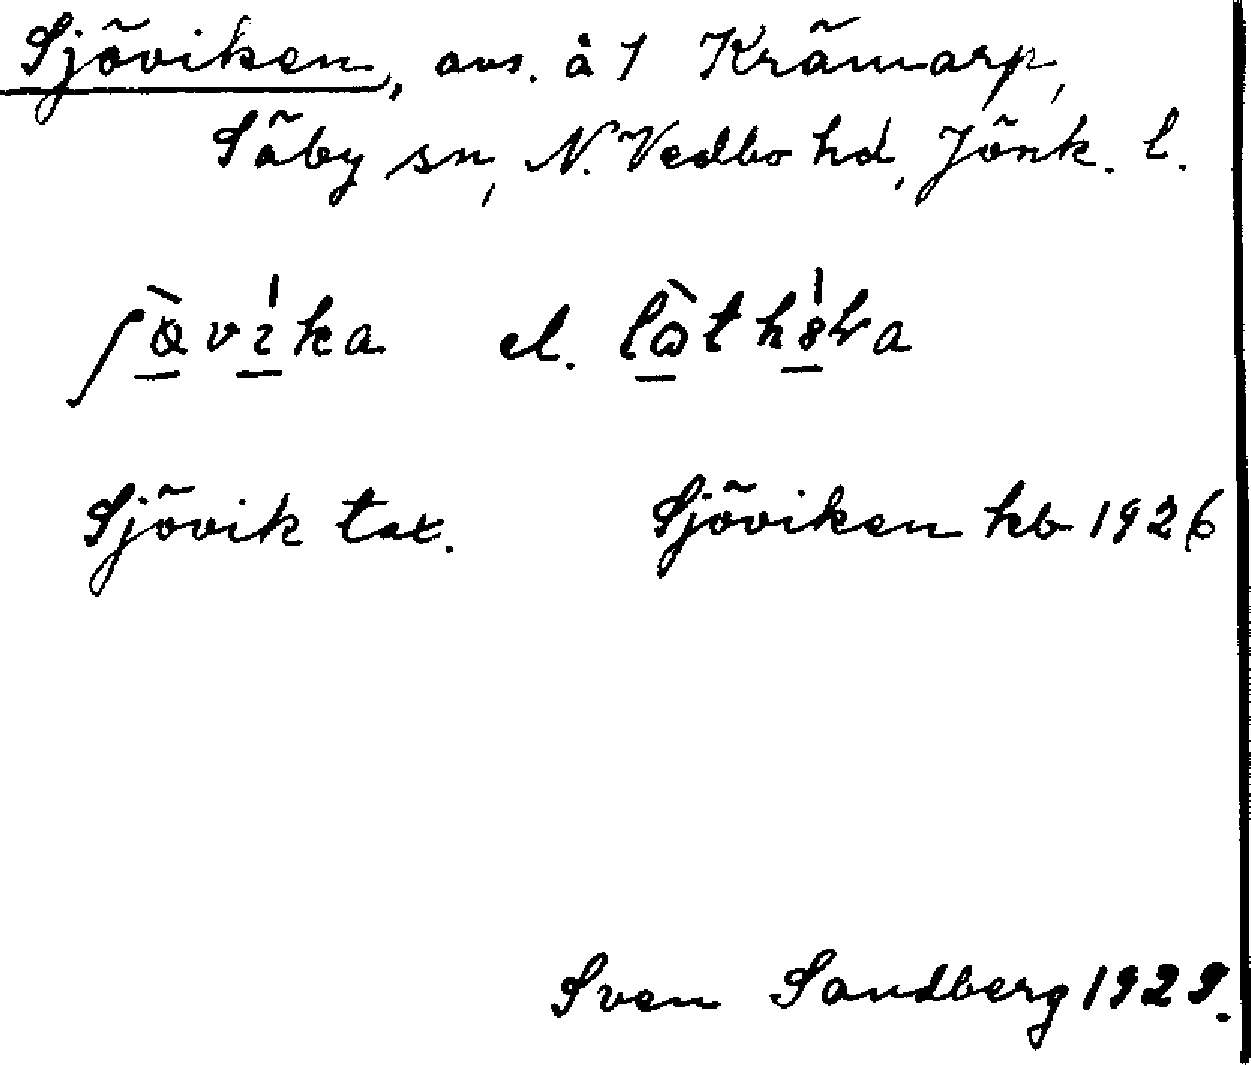 Sjöviken, avs. å 1 Krämarp,
Säby sn, N. Vedbo hd, Jönk. l.
el.
Sjövik tax. Sjöviken kb 1926
Sven Sandberg 1929.